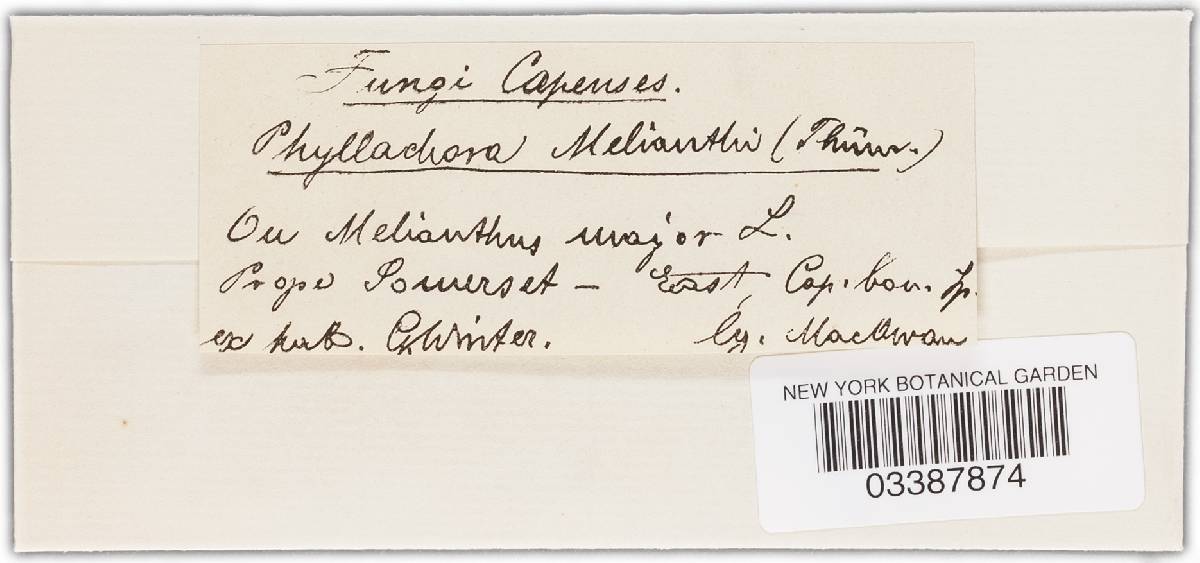 Fungi Capenses.
Phyllachora Melianthi (Thüm.)
On Melianthus major L.
Prope Somerset – East, Cap. bon. sp.
ex herb. G. Winter. lg. MacOwan
NEW YORK BOTANICAL GARDEN
03387874